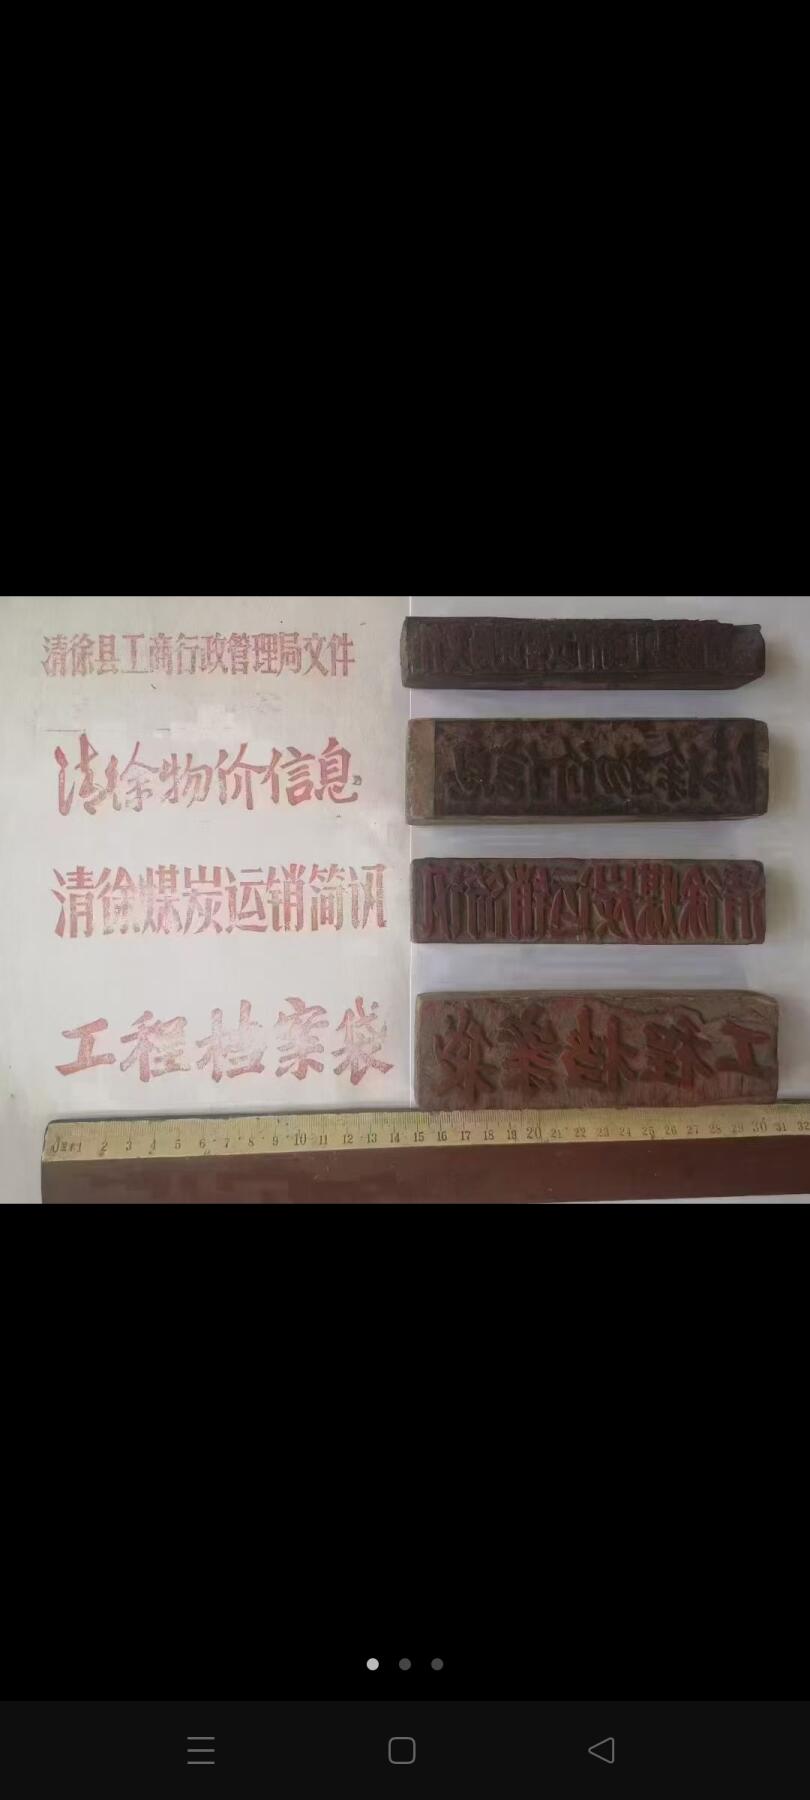 清徐县工商行政管理局文件
清徐物价信息
清徐煤炭运销简讯
工程档案袋
0厘米1 2 3 4 5 6 7 8 9 10 11 12 13 14 15 16 17 18 19 20 21 22 23 24 25 26 27 28 29 30 31 32